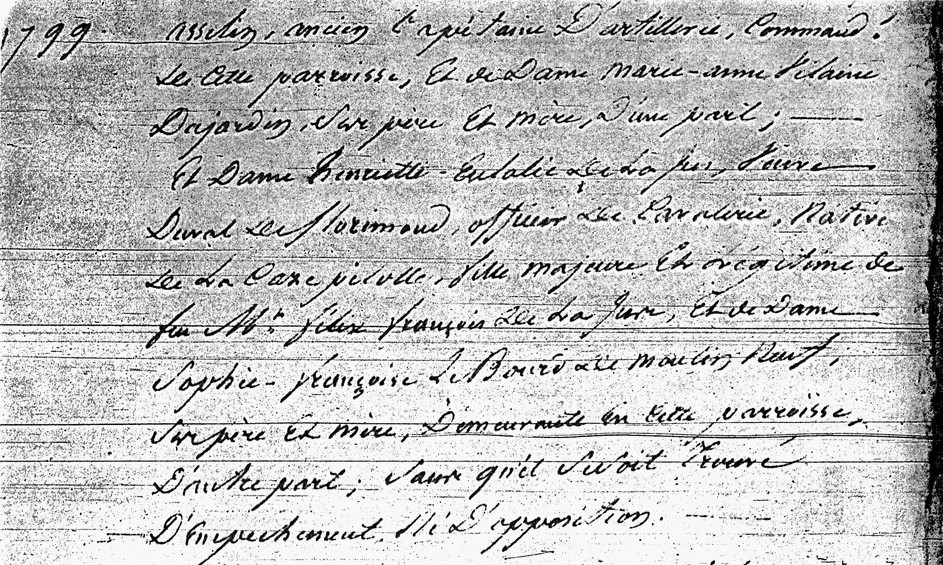 1799. asselin, ancien Capitaine D'artillerie, Command.t
De Cette parroisse, Et de Dame marie-anne
Dujardin, Ses père Et mère, D'une part ;
Et Dame henriette-Eulalie De La Veuve
Duval De florimond, officier De Cavalerie, Native
De La Caze pilotte, fille majeure Et Légitime de
feu Mr. félix françois De La Et de Dame
Sophie-françoise Le De moulin Neuf,
Ses père Et mère, Demeurante En Cette parroisse,
D'autre part ; Sans qu'il Se soit Trouvé
D'Empechement, Ni D'opposition.